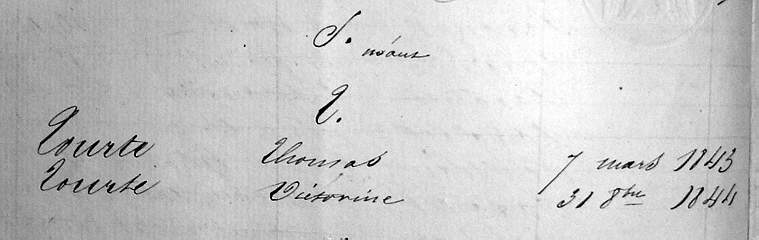 S.
néant
T.
Tourte Thomas 7 mars 1843
Tourte Victorine 31 8bre 1844